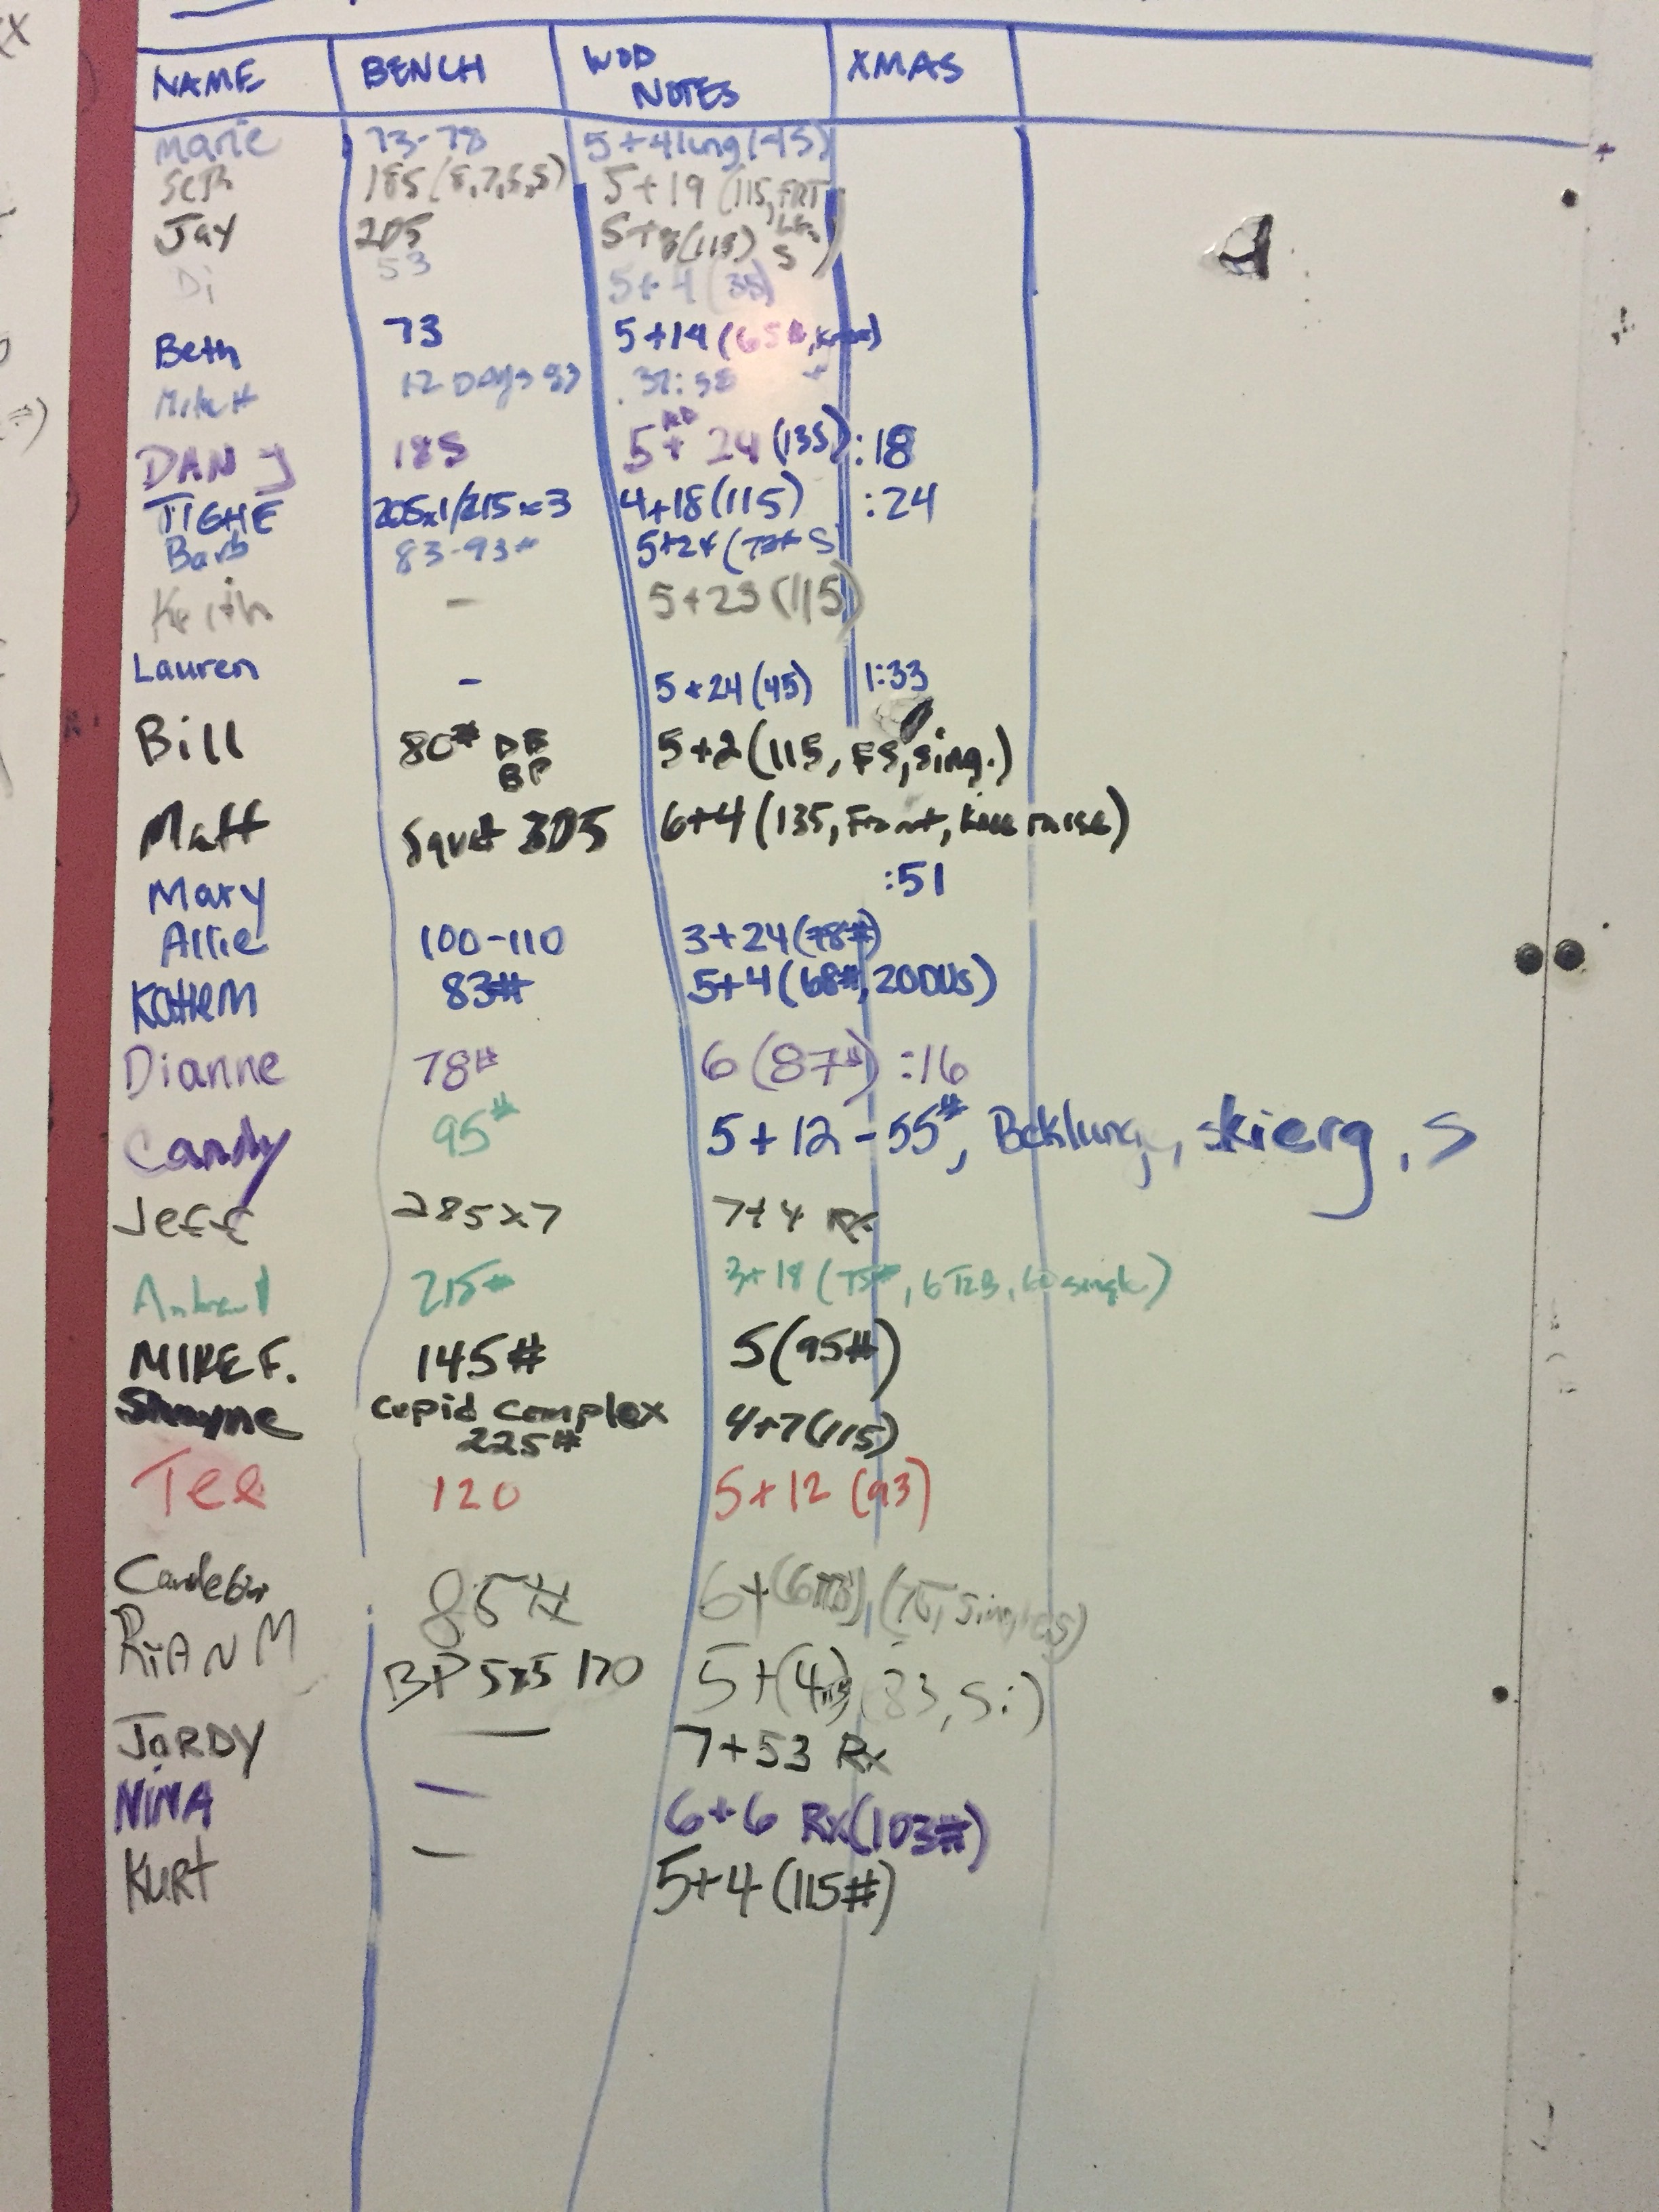 NAME BENCH WOD NOTES XMAS
Marie 73-78 5+4lung(45)
SCR 185(8,7,5,5) 5+19 (115, FRT
Jay 205 5+8(115) S)
Di 53 5+4 (35)
Beth 73 5+14 (65#,
12 DAYS 37:58
DAN J 185 5+24 (135) :18
TIGHE 205x1/215x3 4+18(115) :24
Barb 83-93# 5+24 (73# S
Keith - 5+23(115)
Lauren - 5+24(45) 1:33
Bill 80# DB BP 5+2(115, FS, sing.)
Matt Squat 305 6+4(135, Front, knee raise)
Mary :51
Allie 100-110 3+24(78#)
KatieM 83# 5+4(68#, 20DUs)
Dianne 78# 6(87#) :16
Candy 95# 5+12-55#, Bcklung, skierg, S
Jeff 285x7 7+4 Rx
215# 3+18(75#, 6T2B, 60 single)
MIKE F. 145# 5(95#)
Shayne Cupid Complex 225# 4+7(115)
Tee 120 5+12 (93)
85# 6+(6TTB), (75, Singles)
RiAN M BP 5x5 170 5+(4 (83, Si)
JORDY — 7+53 Rx
NINA — 6+6 Rx(103#)
KURT — 5+4(115#)